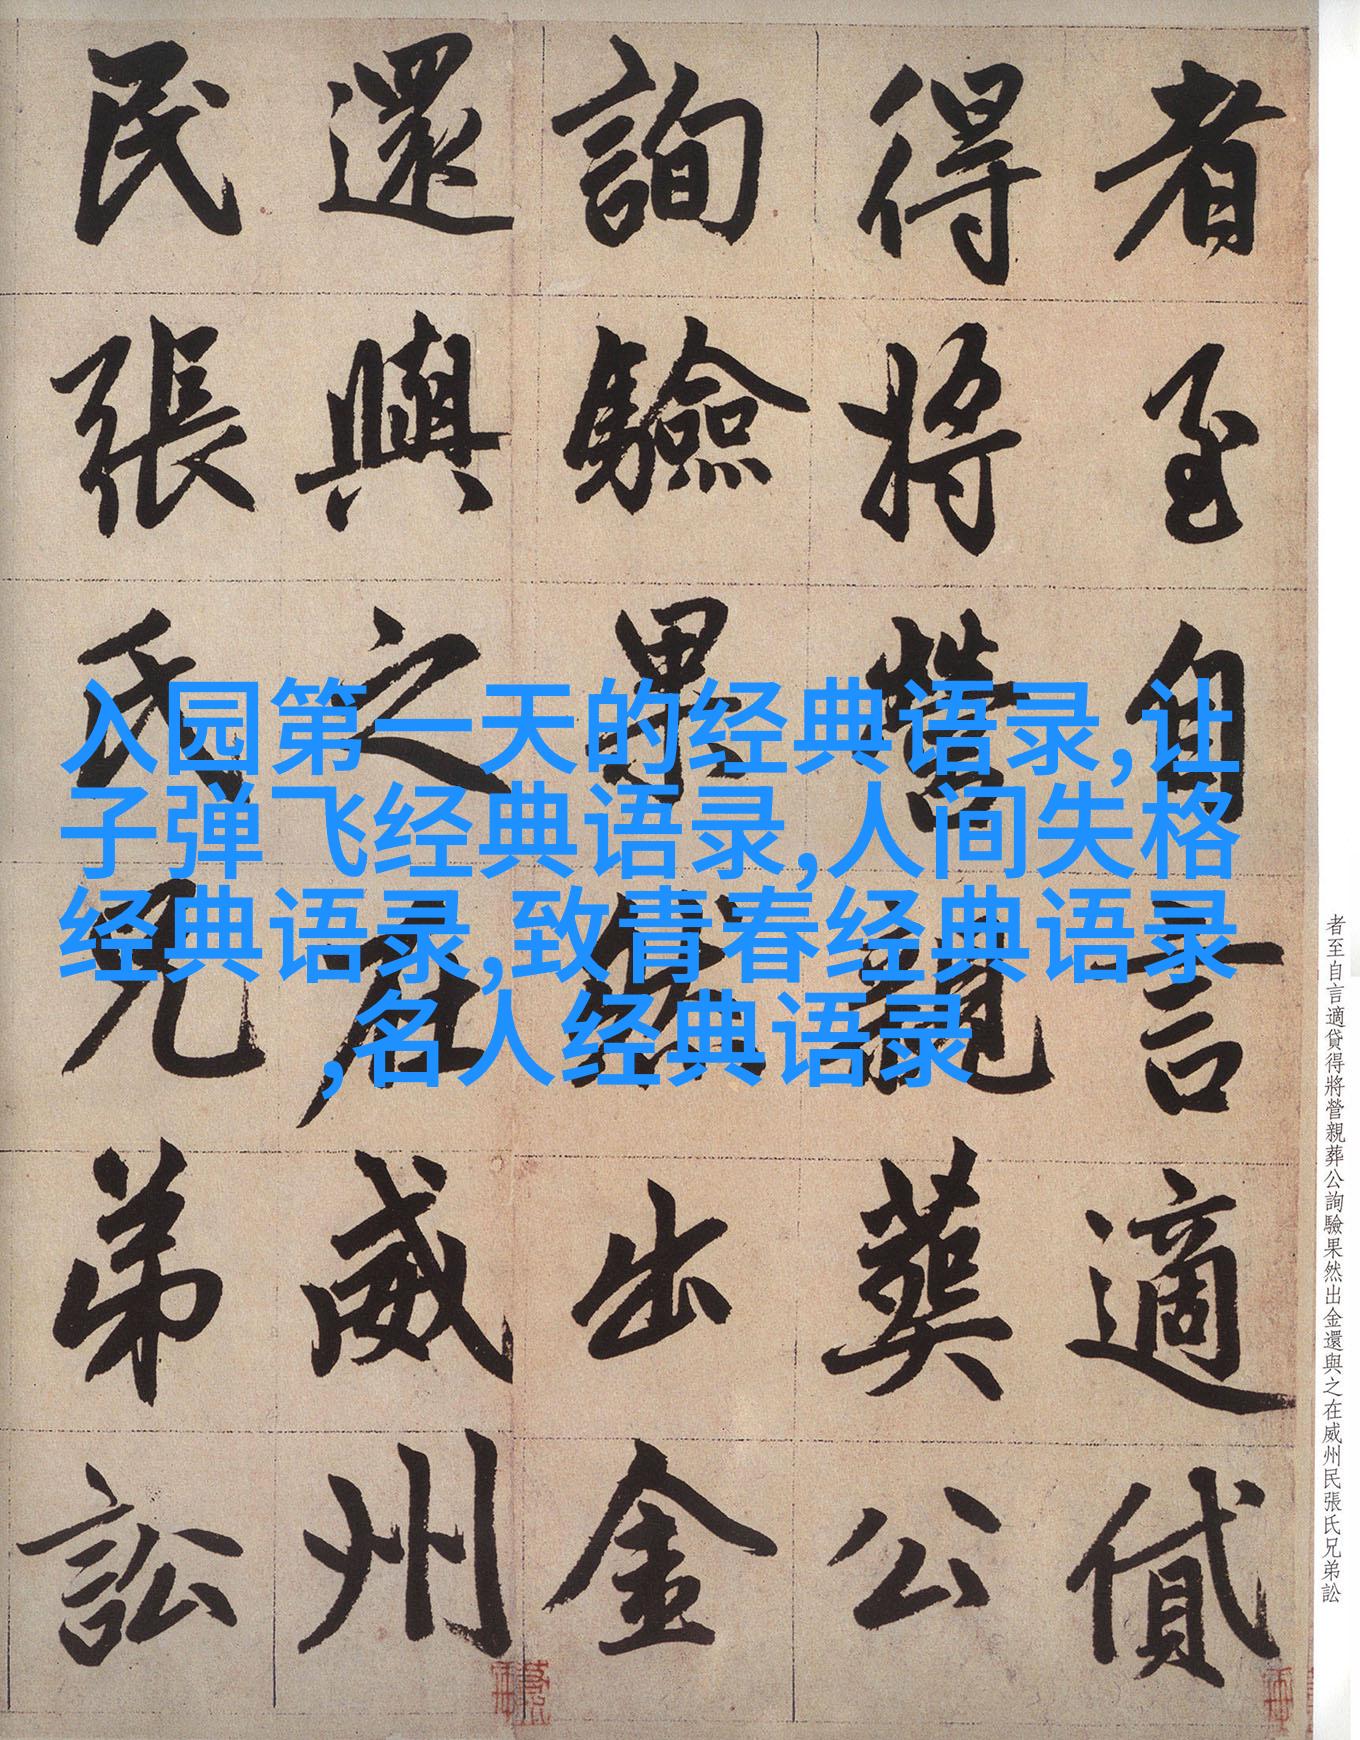 入园第一天的经典语录,让
子弹飞经典语录,人间失格
经典语录,致青春经典语录
,名人经典语录
者至自言適貸
得將營親葬公
詢驗果然出金
還與之在威州
民張氏兄弟訟
者至自言適貸得將營親葬公詢驗果然出金還與之在威州民張氏兄弟訟